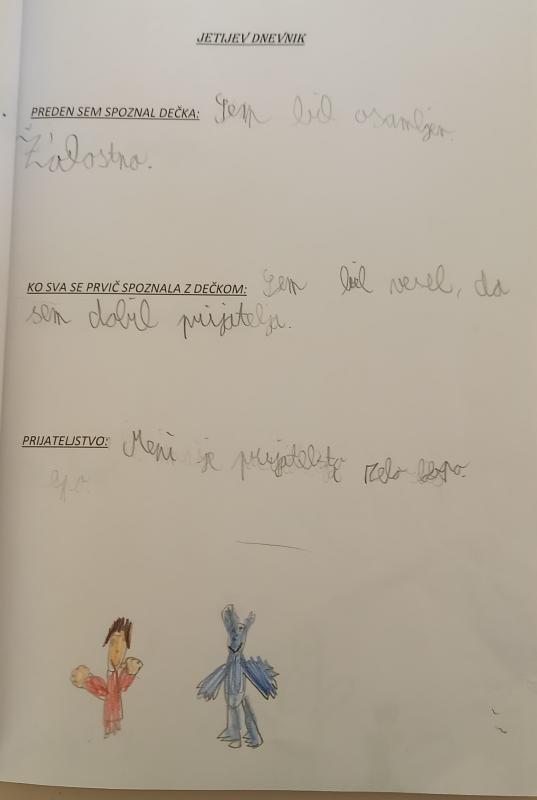 JETIJEV DNEVNIK
PREDEN SEM SPOZNAL DEČKA: Sem bil osamljen.
Žalostno.
KO SVA SE PRVIČ SPOZNALA Z DEČKOM: Sem bil vesel, da
sem dobil prijatelja.
PRIJATELJSTVO: Meni je zelo